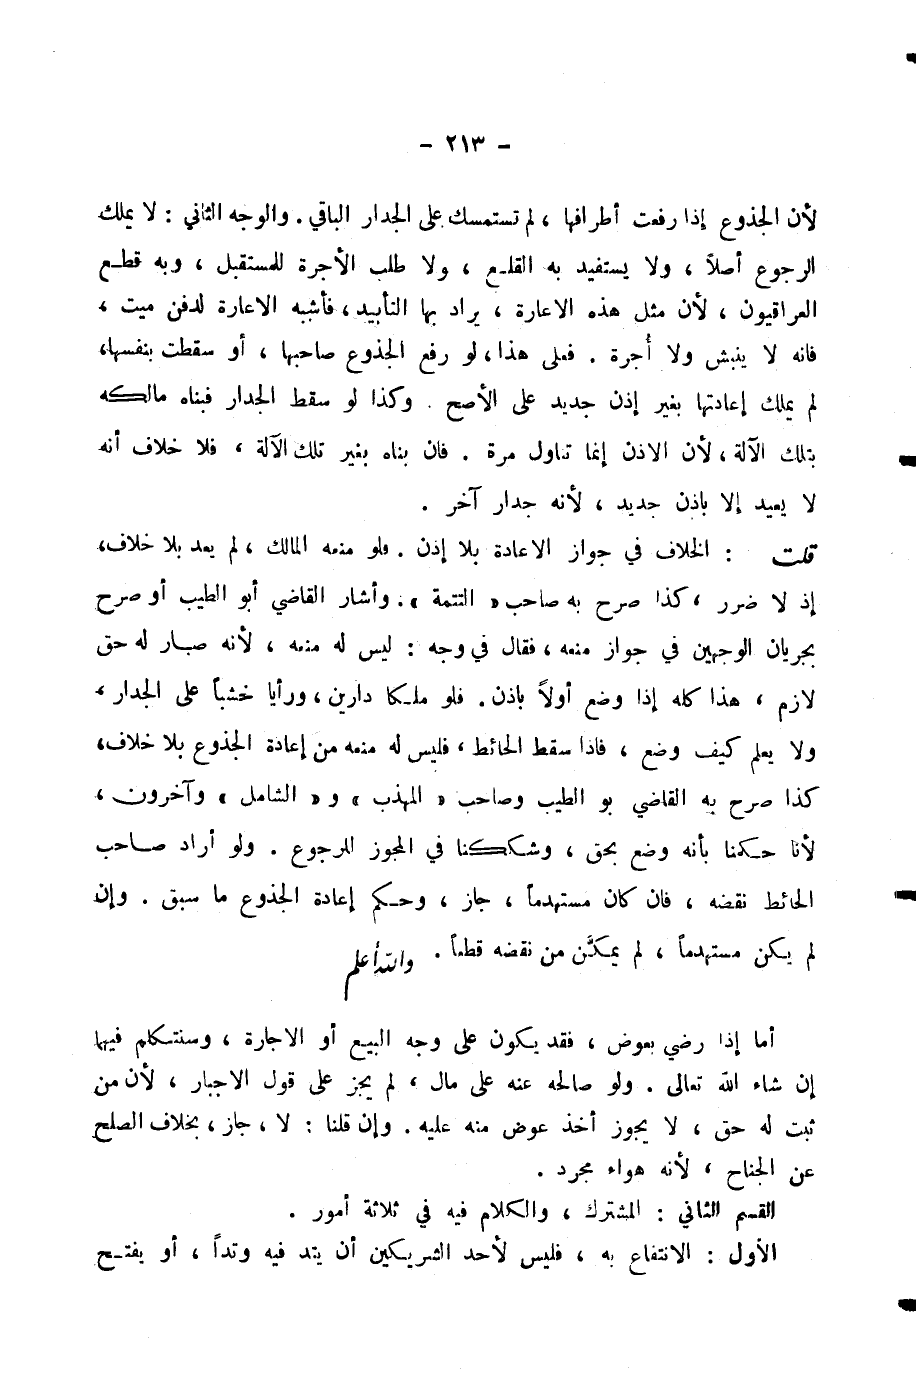 - ٢١٣ -
لأن الجذوع إذا رفعت أطرافها ، لم تستمسك على الجدار الباقي . والوجه الثاني : لا يملك
الرجوع أصلاً ، ولا يستفيد به القلع ، ولا طلب الأجرة للمستقبل ، وبه قطع
العراقيون ، لأن مثل هذه الاعارة ، يراد بها التأبيد ، فأشبه الاعارة لدفن ميت ،
فانه لا ينبش ولا أُجرة . فعلى هذا ، لو رفع الجذوع صاحبها ، أو سقطت بنفسها،
لم يملك إعادتها بغير إذن جديد على الأصح . وكذا لو سقط الجدار فبناه مالكه
بتلك الآلة ، لأن الاذن إنما تناول مرة . فان بناه بغير تلك الآلة ، فلا خلاف أنه
لا يعيد إلا باذن جديد ، لأنه جدار آخر .
قلت : الخلاف في جواز الاعادة بلا إذن . فلو منعه المالك ، لم يعد بلا خلاف،
إذ لا ضرر ، كذا صرح به صاحب « التتمة » . وأشار القاضي أبو الطيب أو صرح
بجريان الوجهين في جواز منعه ، فقال في وجه : ليس له منعه ، لأنه صار له حق
لازم ، هذا كله إذا وضع أولاً باذن . فلو ملكا دارين ، ورأيا خشباً على الجدار ،
ولا يعلم كيف وضع ، فاذا سقط الحائط ، فليس له منعه من إعادة الجذوع بلا خلاف،
كذا صرح به القاضي بو الطيب وصاحب « المهذب » و « الشامل » وآخرون ،
لأنا حكمنا بأنه وضع بحق ، وشككنا في المجوز للرجوع . ولو أراد صاحب
الحائط نقضه ، فان كان مستهدماً ، جاز ، وحكم إعادة الجذوع ما سبق . وإن
لم يكن مستهدماً ، لم يمكَّن من نقضه قطعاً . والله أعلم
أما إذا رضي بعوض ، فقد يكون على وجه البيع أو الاجارة ، وسنتكلم فيها
إن شاء الله تعالى . ولو صالحه عنه على مال ، لم يجز على قول الاجبار ، لأن من
ثبت له حق ، لا يجوز أخذ عوض منه عليه . وإن قلنا : لا ، جاز ، بخلاف الصلح
عن الجناح ، لأنه هواء مجرد .
القسم الثاني : المشترك ، والكلام فيه في ثلاثة أمور .
الأول : الانتفاع به ، فليس لأحد الشريكين أن يتد فيه وتداً ، أو يفتح